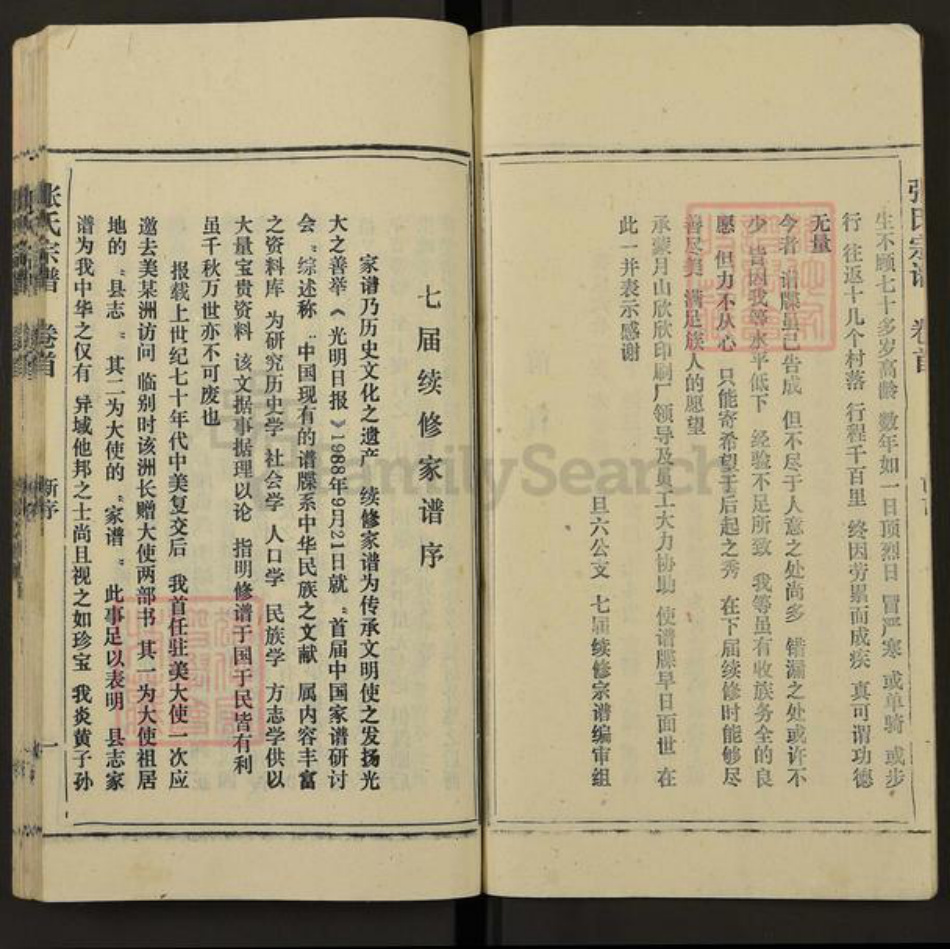 张氏宗谱 卷首
生不顾七十多岁高龄 数年如一日顶烈日 冒严寒 或单骑 或步
行 往返十几个村落 行程千百里 终因劳累而成疾 真可谓功德
无量
今者 谱牒虽已告成 但不尽于人意之处尚多 错漏之处或许不
少 皆因我等水平低下 经验不足所致 我等虽有收族务全的良
愿 但力不从心 只能寄希望于后起之秀 在下届续修时能够尽
善尽美 满足族人的愿望
承蒙月山欣欣印刷厂领导及员工大力协助 使谱牒早日面世 在
此一并表示感谢
旦六公支 七届续修宗谱编审组
七届续修家谱序
家谱乃历史文化之遗产 续修家谱为传承文明使之发扬光
大之善举《光明日报》1988年9月21日就“首届中国家谱研讨
会”综述称：“中国现有的谱牒系中华民族之文献 属内容丰富
之资料库 为研究历史学 社会学 人口学 民族学 方志学供以
大量宝贵资料 该文据事据理以论 指明修谱于国于民皆有利
虽千秋万世亦不可废也
报载上世纪七十年代中美复交后 我首任驻美大使一次应
邀去美某洲访问 临别时该洲长赠大使两部书 其一为大使祖居
地的“县志”其二为大使的“家谱”此事足以表明 县志家
谱为我中华之仅有 异域他邦之士尚且视之如珍宝 我炎黄子孙
张氏宗谱 卷首 新序 一
FamilySearch